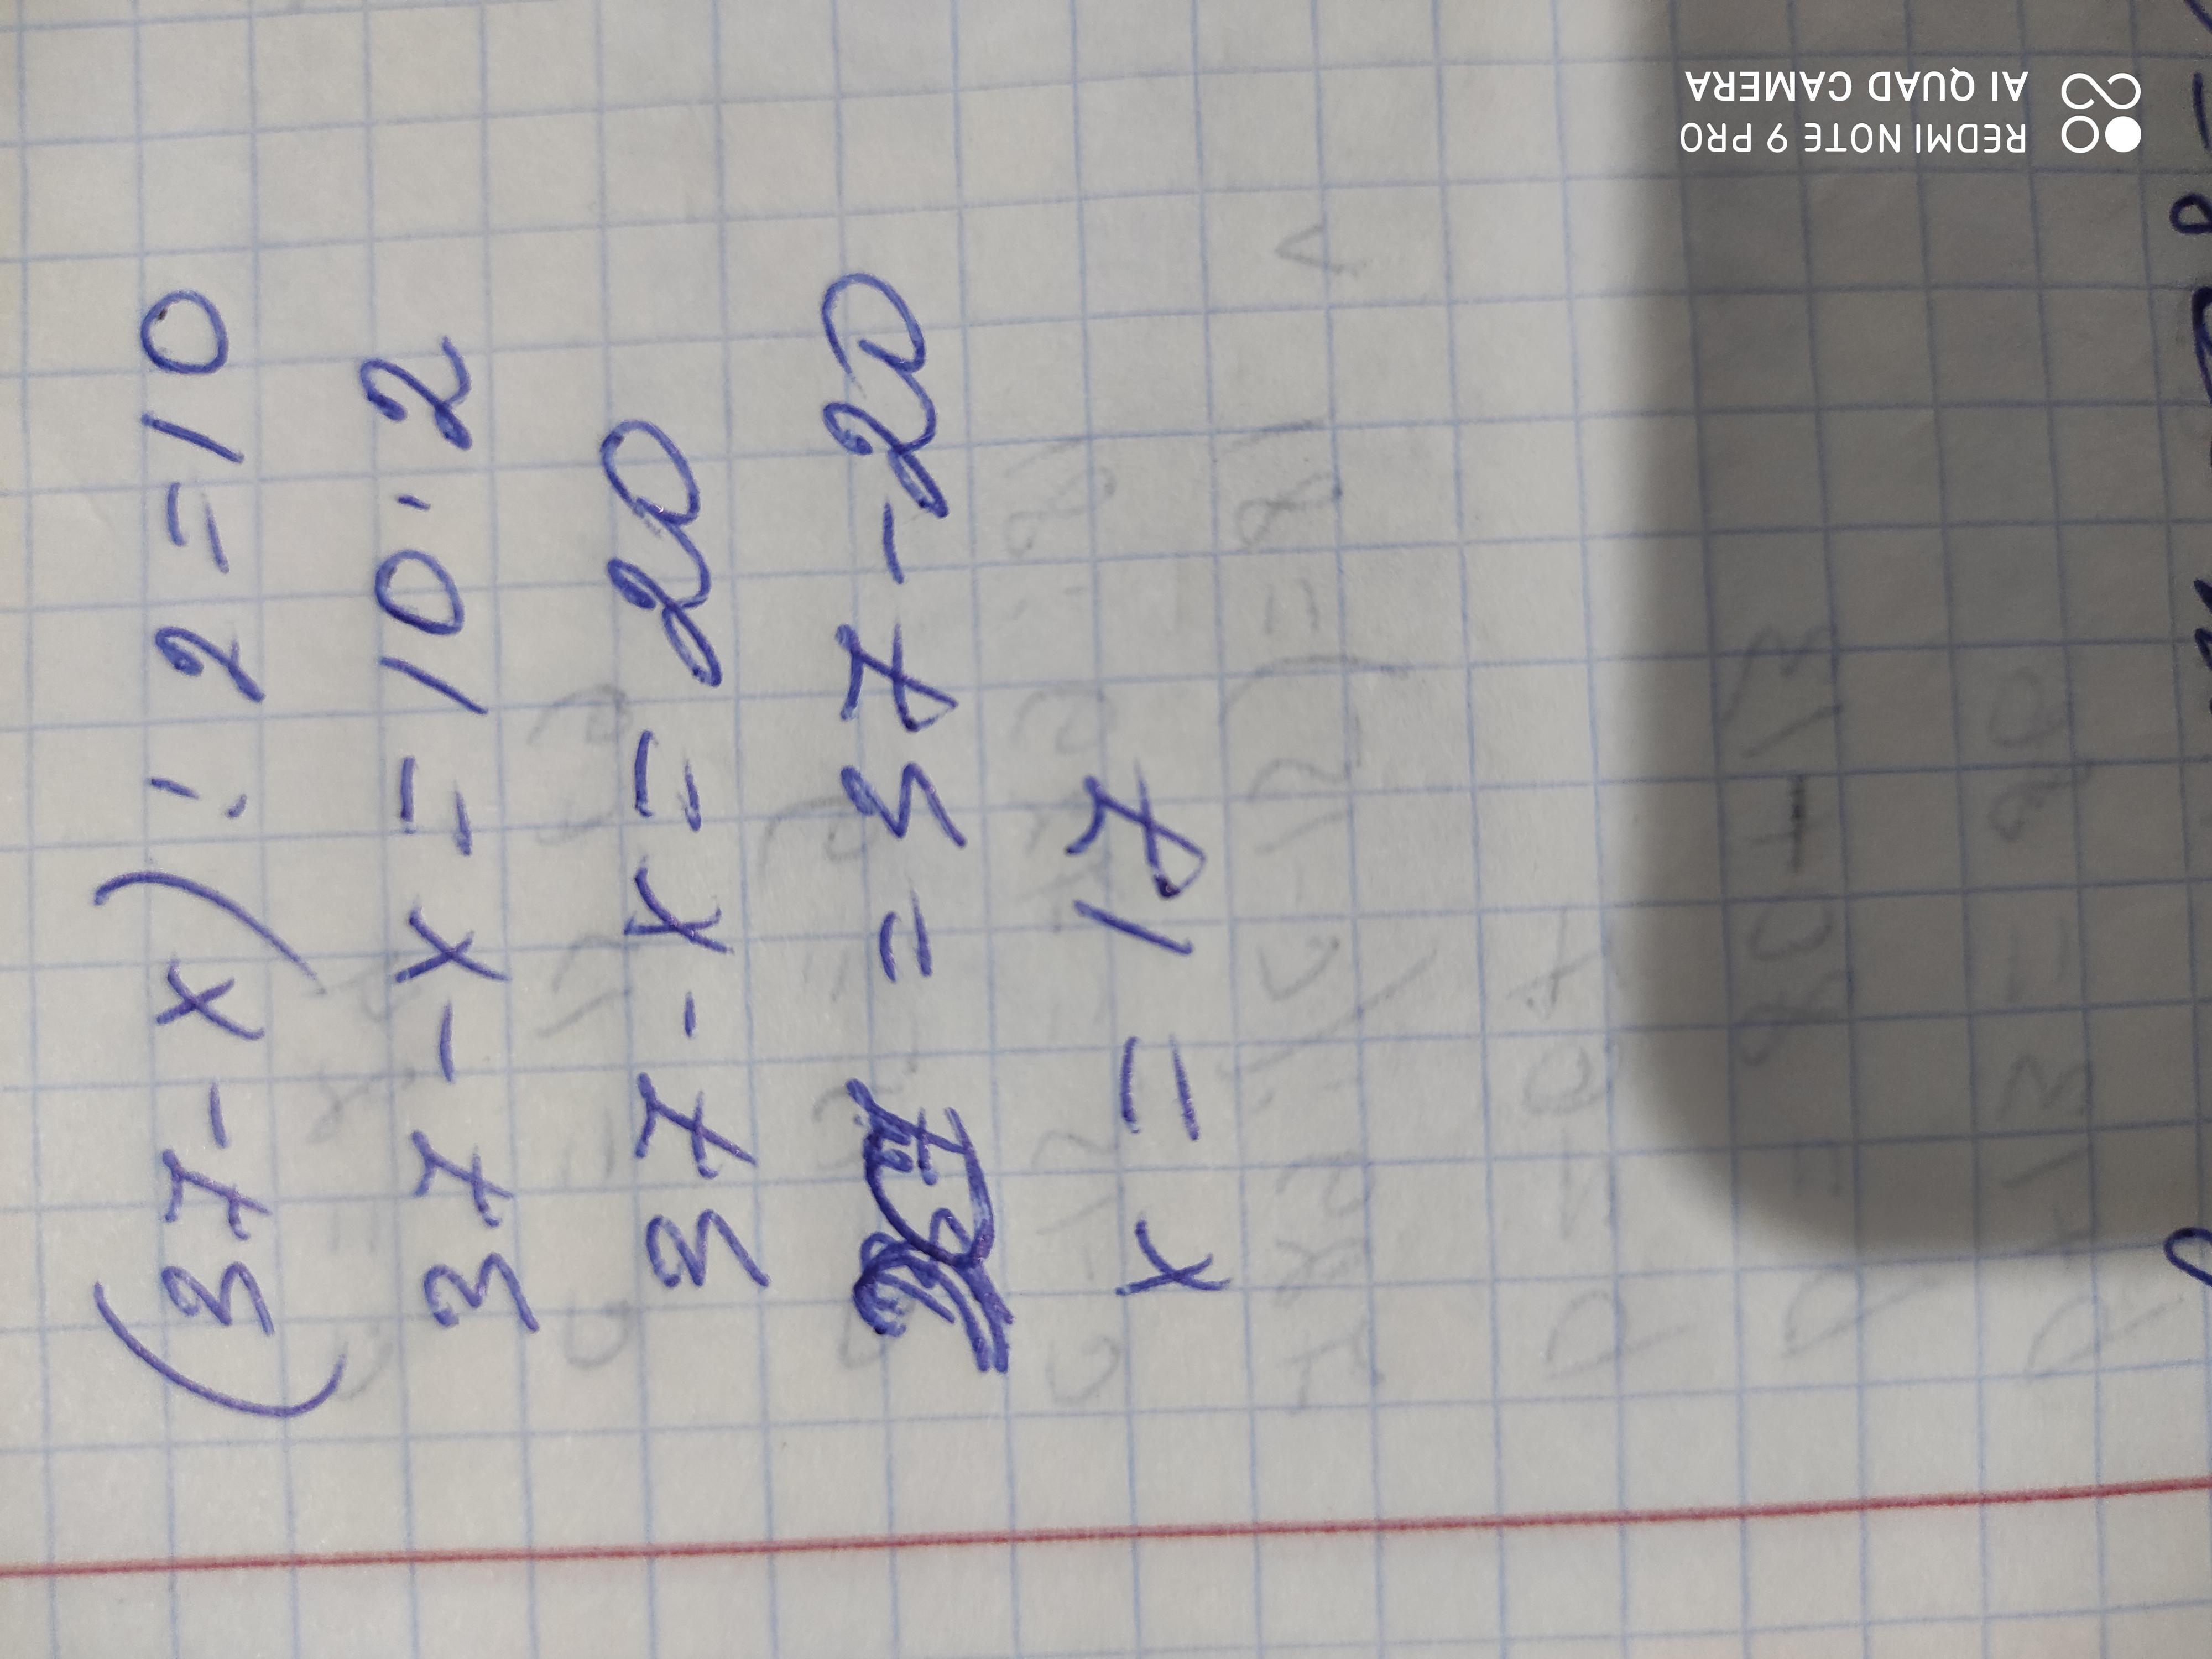 (37-x):2=10
37-x=10·2
37-x=20
=37-20
x=17
REDMI NOTE 9 PRO
AI QUAD CAMERA